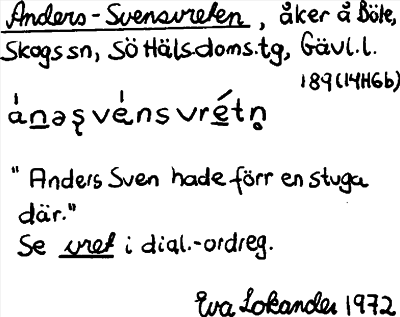 Anders-Svensvreten, åker å Böle,
Skogs sn, Sö Häls.doms.tg, Gävl.l.
189(14H6b)
ánəș vénsvrétn̥
"Anders Sven hade förr en stuga
där."
Se vret i dial.-ordreg.
Eva Lokander 1972